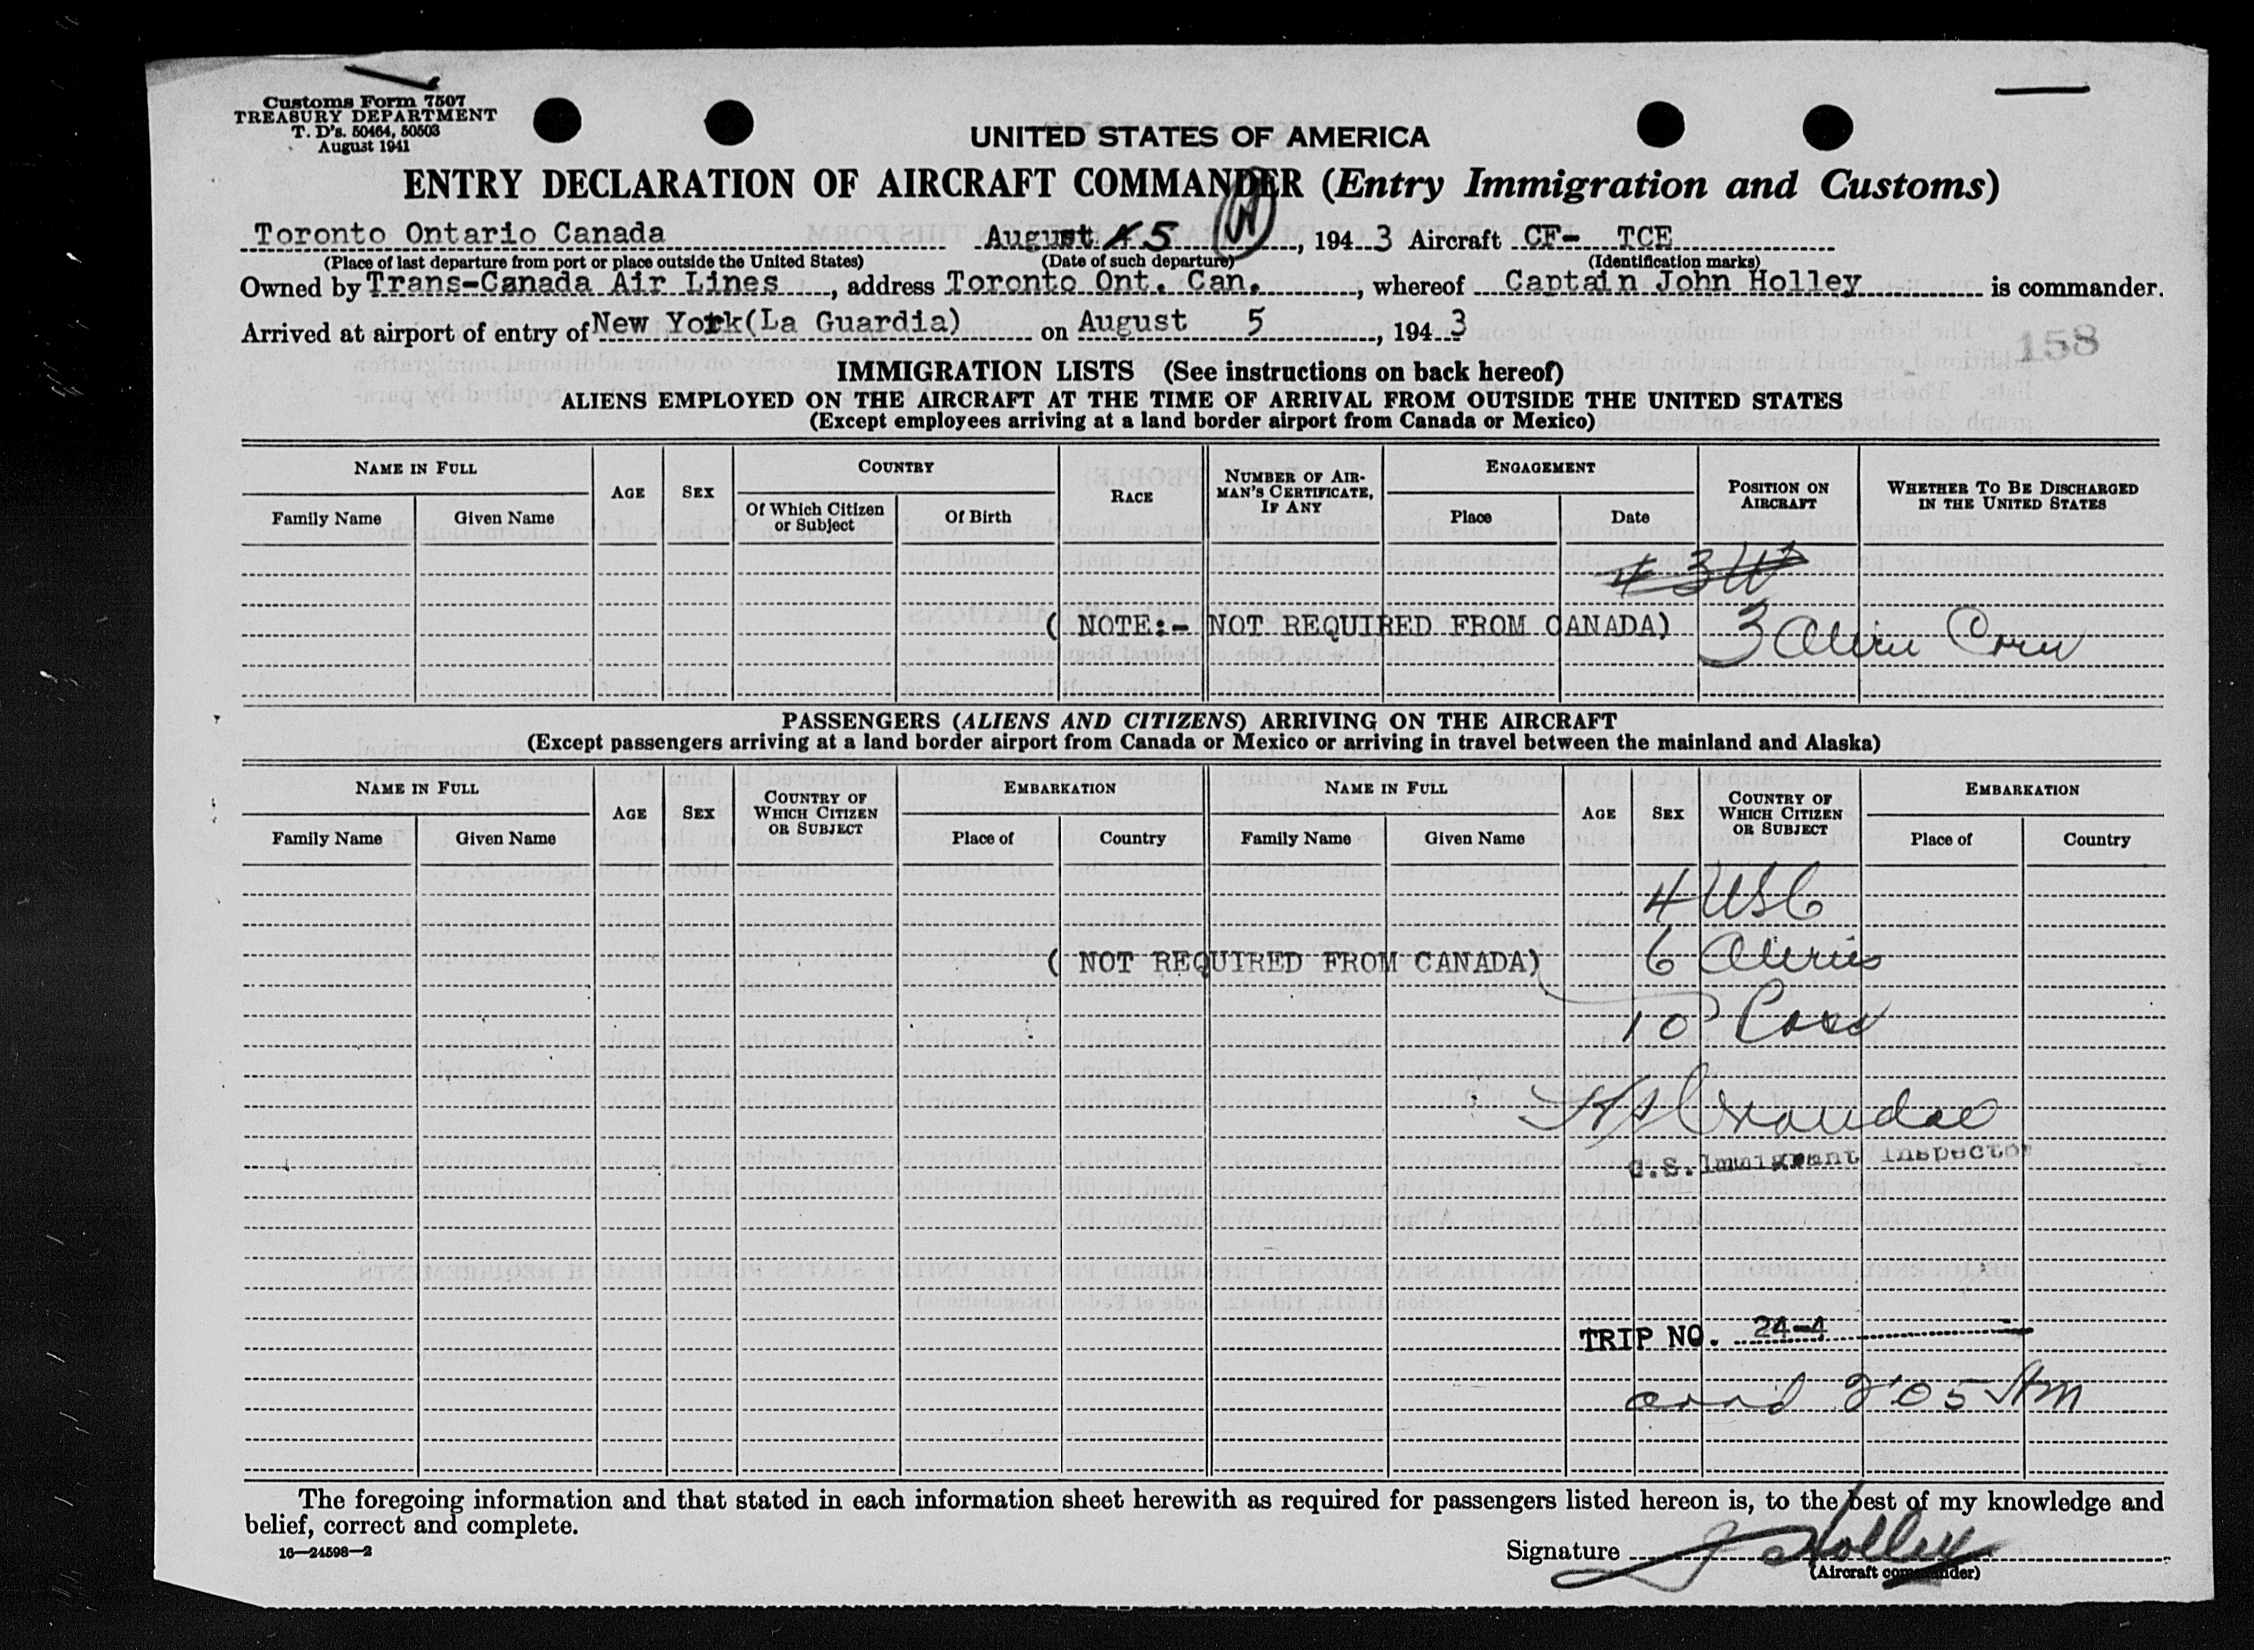 Customs Form 7507
TREASURY DEPARTMENT
T. D's. 50464, 50503
August 1941
UNITED STATES OF AMERICA
ENTRY DECLARATION OF AIRCRAFT COMMANDER (Entry Immigration and Customs)
Toronto Ontario Canada August 4 5, 1943 Aircraft CF- TCE
(Place of last departure from port or place outside the United States) (Date of such departure) (Identification marks)
Owned by Trans-Canada Air Lines, address Toronto Ont. Can., whereof Captain John Holley is commander.
Arrived at airport of entry of New York(La Guardia) on August 5, 1943
158
IMMIGRATION LISTS (See instructions on back hereof)
ALIENS EMPLOYED ON THE AIRCRAFT AT THE TIME OF ARRIVAL FROM OUTSIDE THE UNITED STATES
(Except employees arriving at a land border airport from Canada or Mexico)
NAME IN FULL AGE SEX COUNTRY RACE NUMBER OF AIRMAN'S CERTIFICATE, IF ANY ENGAGEMENT POSITION ON AIRCRAFT WHETHER TO BE DISCHARGED IN THE UNITED STATES
Family Name Given Name Of Which Citizen or Subject Of Birth Place Date
( NOTE:- NOT REQUIRED FROM CANADA) 3 Alien Crew
PASSENGERS (ALIENS AND CITIZENS) ARRIVING ON THE AIRCRAFT
(Except passengers arriving at a land border airport from Canada or Mexico or arriving in travel between the mainland and Alaska)
NAME IN FULL AGE SEX COUNTRY OF WHICH CITIZEN OR SUBJECT EMBARKATION NAME IN FULL AGE SEX COUNTRY OF WHICH CITIZEN OR SUBJECT EMBARKATION
Family Name Given Name Place of Country Family Name Given Name Place of Country
4 USC
( NOT REQUIRED FROM CANADA) 6 Aliens
10 Pass
U.S. Immigrant Inspector
TRIP NO. 24-4
arrd 2:05 AM
The foregoing information and that stated in each information sheet herewith as required for passengers listed hereon is, to the best of my knowledge and
belief, correct and complete.
16—24598—2
Signature J Holley
(Aircraft commander)